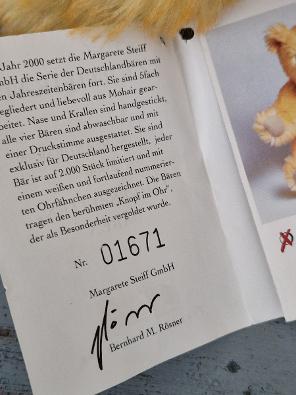 Jahr 2000 setzt die Margarete Steiff
mbH die Serie der Deutschlandbären mit
n Jahreszeitenbären fort. Sie sind 5fach
egliedert und liebevoll aus Mohair gear-
beitet. Nase und Krallen sind handgestickt,
alle vier Bären sind abwaschbar und mit
einer Druckstimme ausgestattet. Sie sind
exklusiv für Deutschland hergestellt, jeder
Bär ist auf 2.000 Stück limitiert und mit
einem weißen und fortlaufend nummerier-
ten Ohrfähnchen ausgezeichnet. Die Bären
tragen den berühmten „Knopf im Ohr",
der als Besonderheit vergoldet wurde.
Nr. 01671
Margarete Steiff GmbH
Bernhard M. Rösner